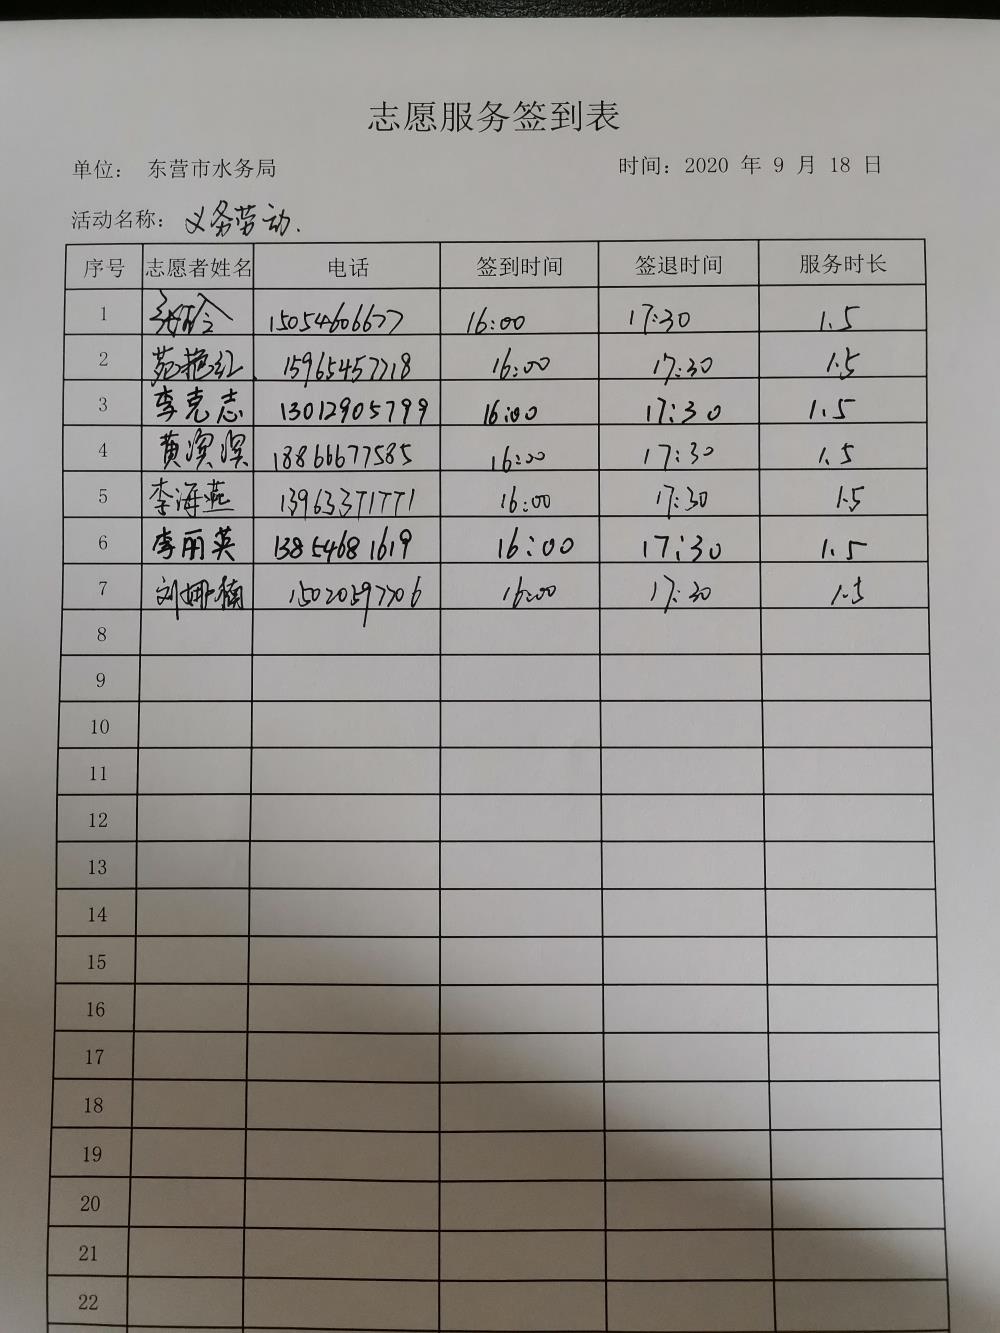 志愿服务签到表
单位： 东营市水务局 时间：2020 年 9 月 18 日
活动名称： 义务劳动.
序号 志愿者姓名 电话 签到时间 签退时间 服务时长
1 15054606677 16:00 17:30 1.5
2 苑艳红 15965457718 16:00 17:30 1.5
3 李克志 13012905799 16:00 17:30 1.5
4 黄溟溟 18866677585 16:00 17:30 1.5
5 李海燕 13963371771 16:00 17:30 1.5
6 李丽英 13854681619 16:00 17:30 1.5
7 刘娜楠 15020597706 16:00 17:30 1.5
8
9
10
11
12
13
14
15
16
17
18
19
20
21
22